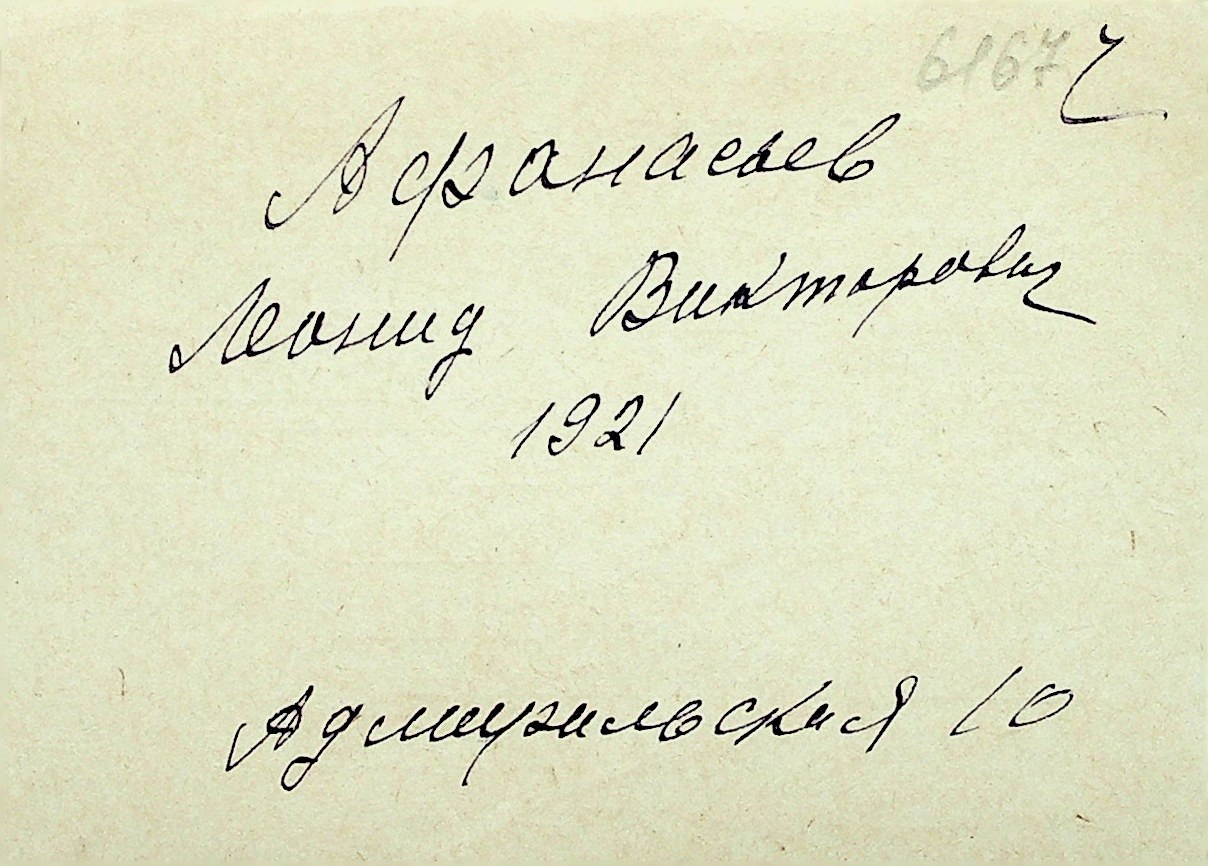 6167 ч
Афанасьев
Леонид Викторович
1921
Адмиральская 10